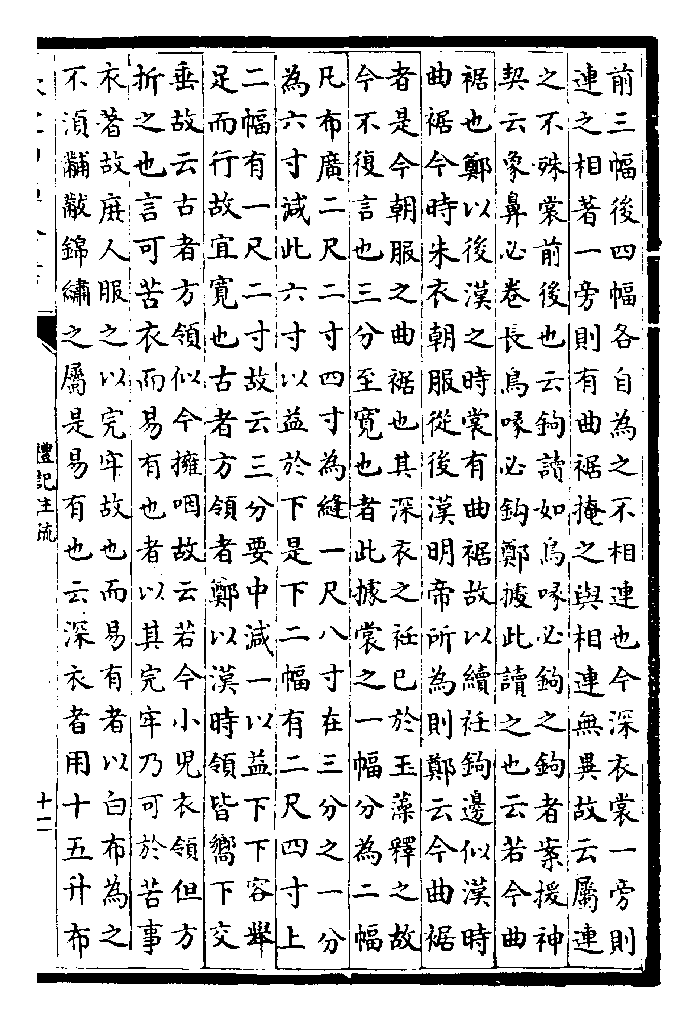 前三幅後四幅各自為之不相連也今深衣裳一旁則
連之相著一旁則有曲裾掩之與相連無異故云屬連
之不殊裳前後也云鉤讀如鳥喙必鉤之鉤者案援神
契云象鼻必卷長鳥喙必鉤鄭據此讀之也云若今曲
裾也鄭以後漢之時裳有曲裾故以續衽鉤邊似漢時
曲裾今時朱衣朝服從後漢明帝所為則鄭云今曲裾
者是今朝服之曲裾也其深衣之衽已於玉藻釋之故
今不復言也三分至寬也者此據裳之一幅分為二幅
凡布廣二尺二寸四寸為縫一尺八寸在三分之一分
為六寸減此六寸以益於下是下二幅有二尺四寸上
二幅有一尺二寸故云三分要中減一以益下下容舉
足而行故宜寬也古者方領者鄭以漢時領皆嚮下交
垂故云古者方領似今擁咽故云若今小兒衣領但方
折之也言可苦衣而易有也者以其完牢乃可於苦事
衣著故庶人服之以完牢故也而易有者以白布為之
不湏黼黻錦繡之屬是易有也云深衣者用十五升布
禮記注疏
十二